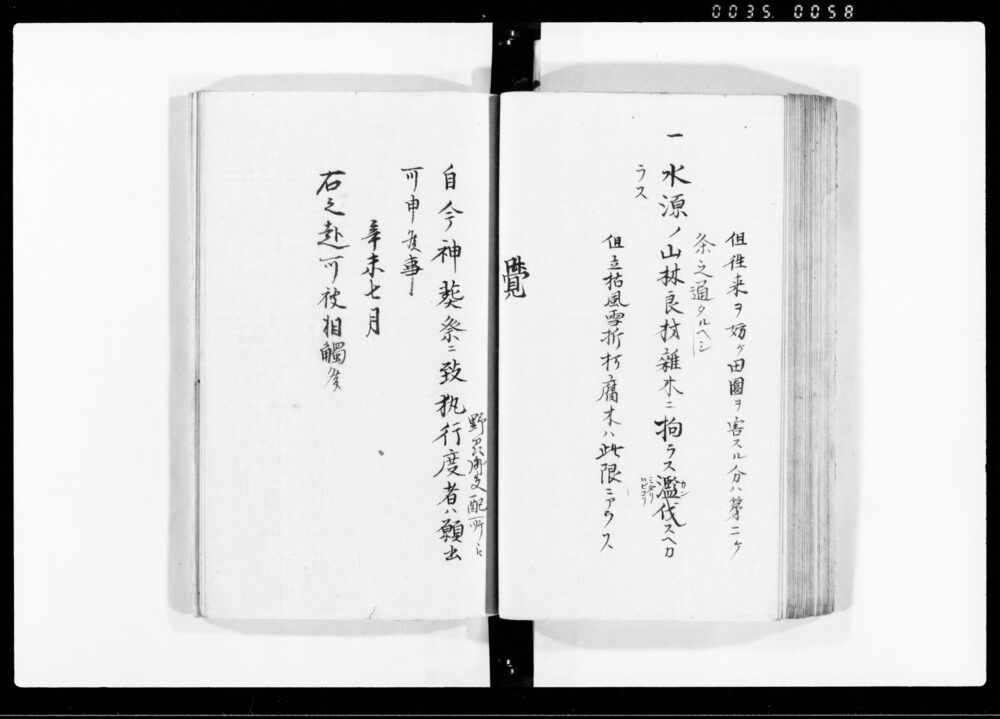 0035. 0058
但往来ヲ妨ケ田園ヲ害スル分ハ第二ケ
条之通タルヘシ
一水源ノ山林良材雑木ニ拘ラス濫伐スヘカ
ラス
但立枯風雪折朽腐木ハ此限ニアラス
覺
自今神葬祭ニ致執行度者ハ願出
可申候事
辛未七月
右之趣可被相觸候